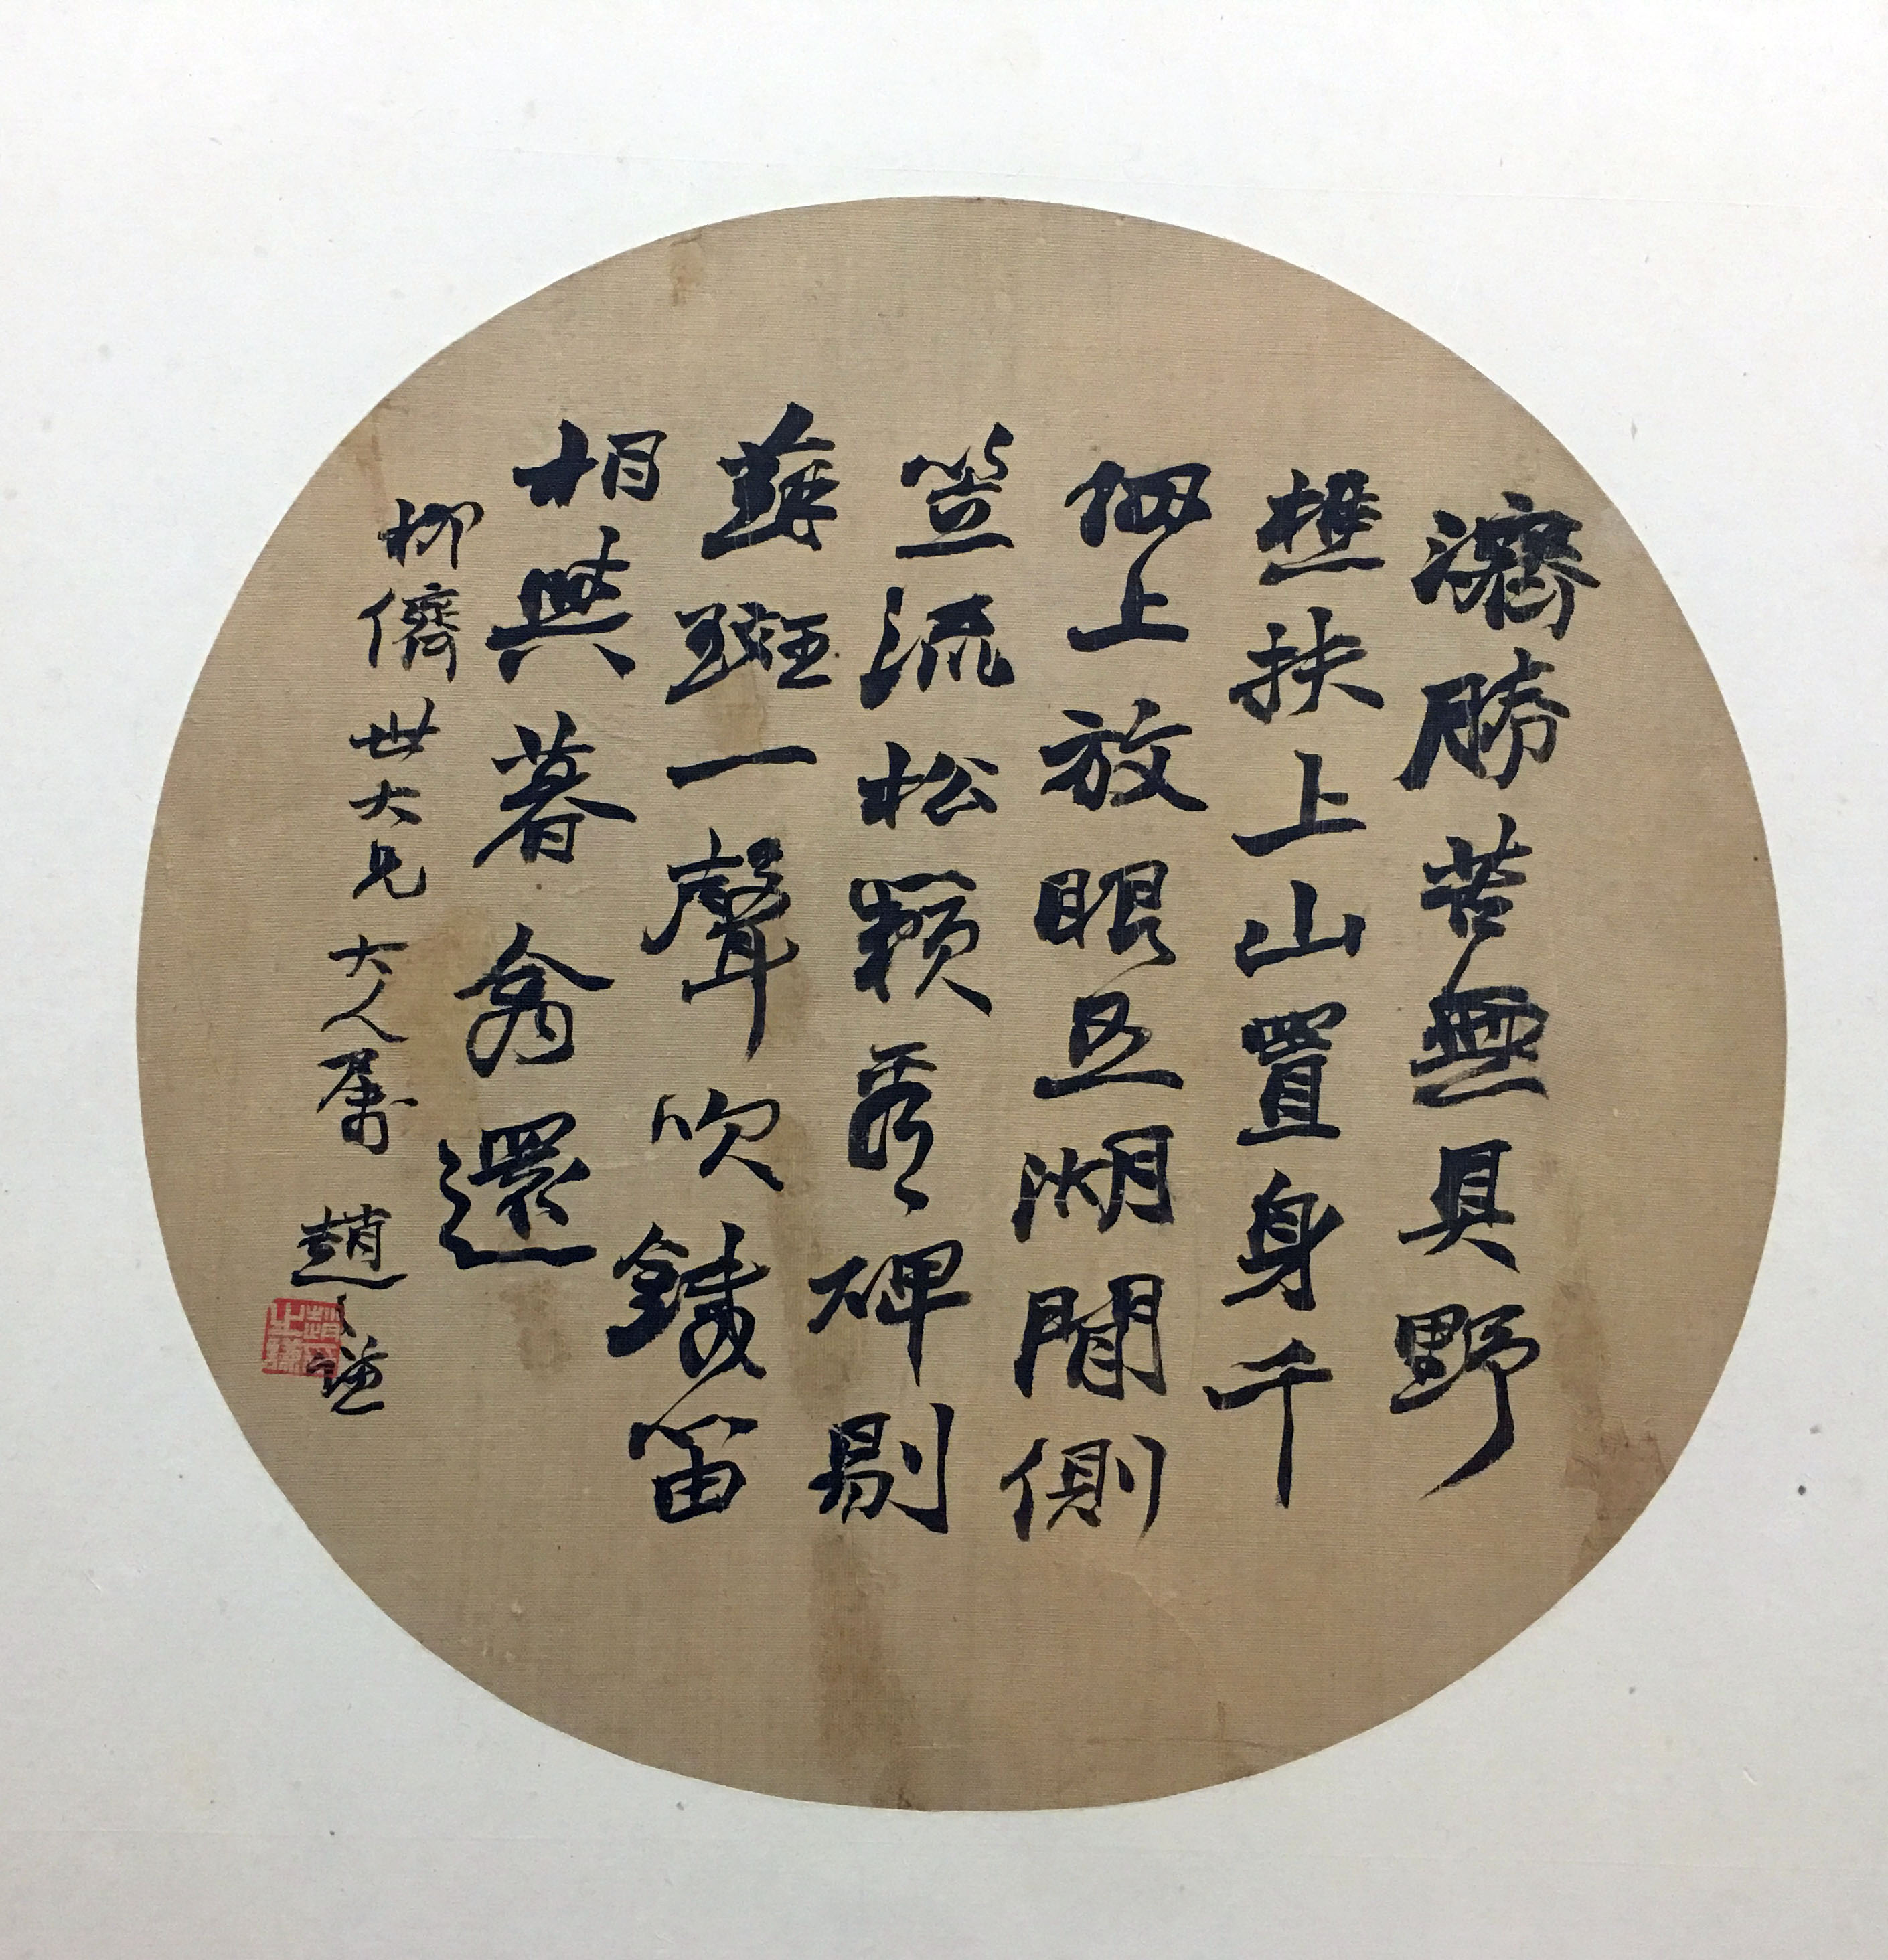 濟勝苦無具野
樵扶上山置身千
仞上放眼五湖間側
笠流松顆看碑剔
蘚斑一聲吹鐵笛
相與暮禽還
柳儕世大兄大人屬 趙之謙
趙之謙印